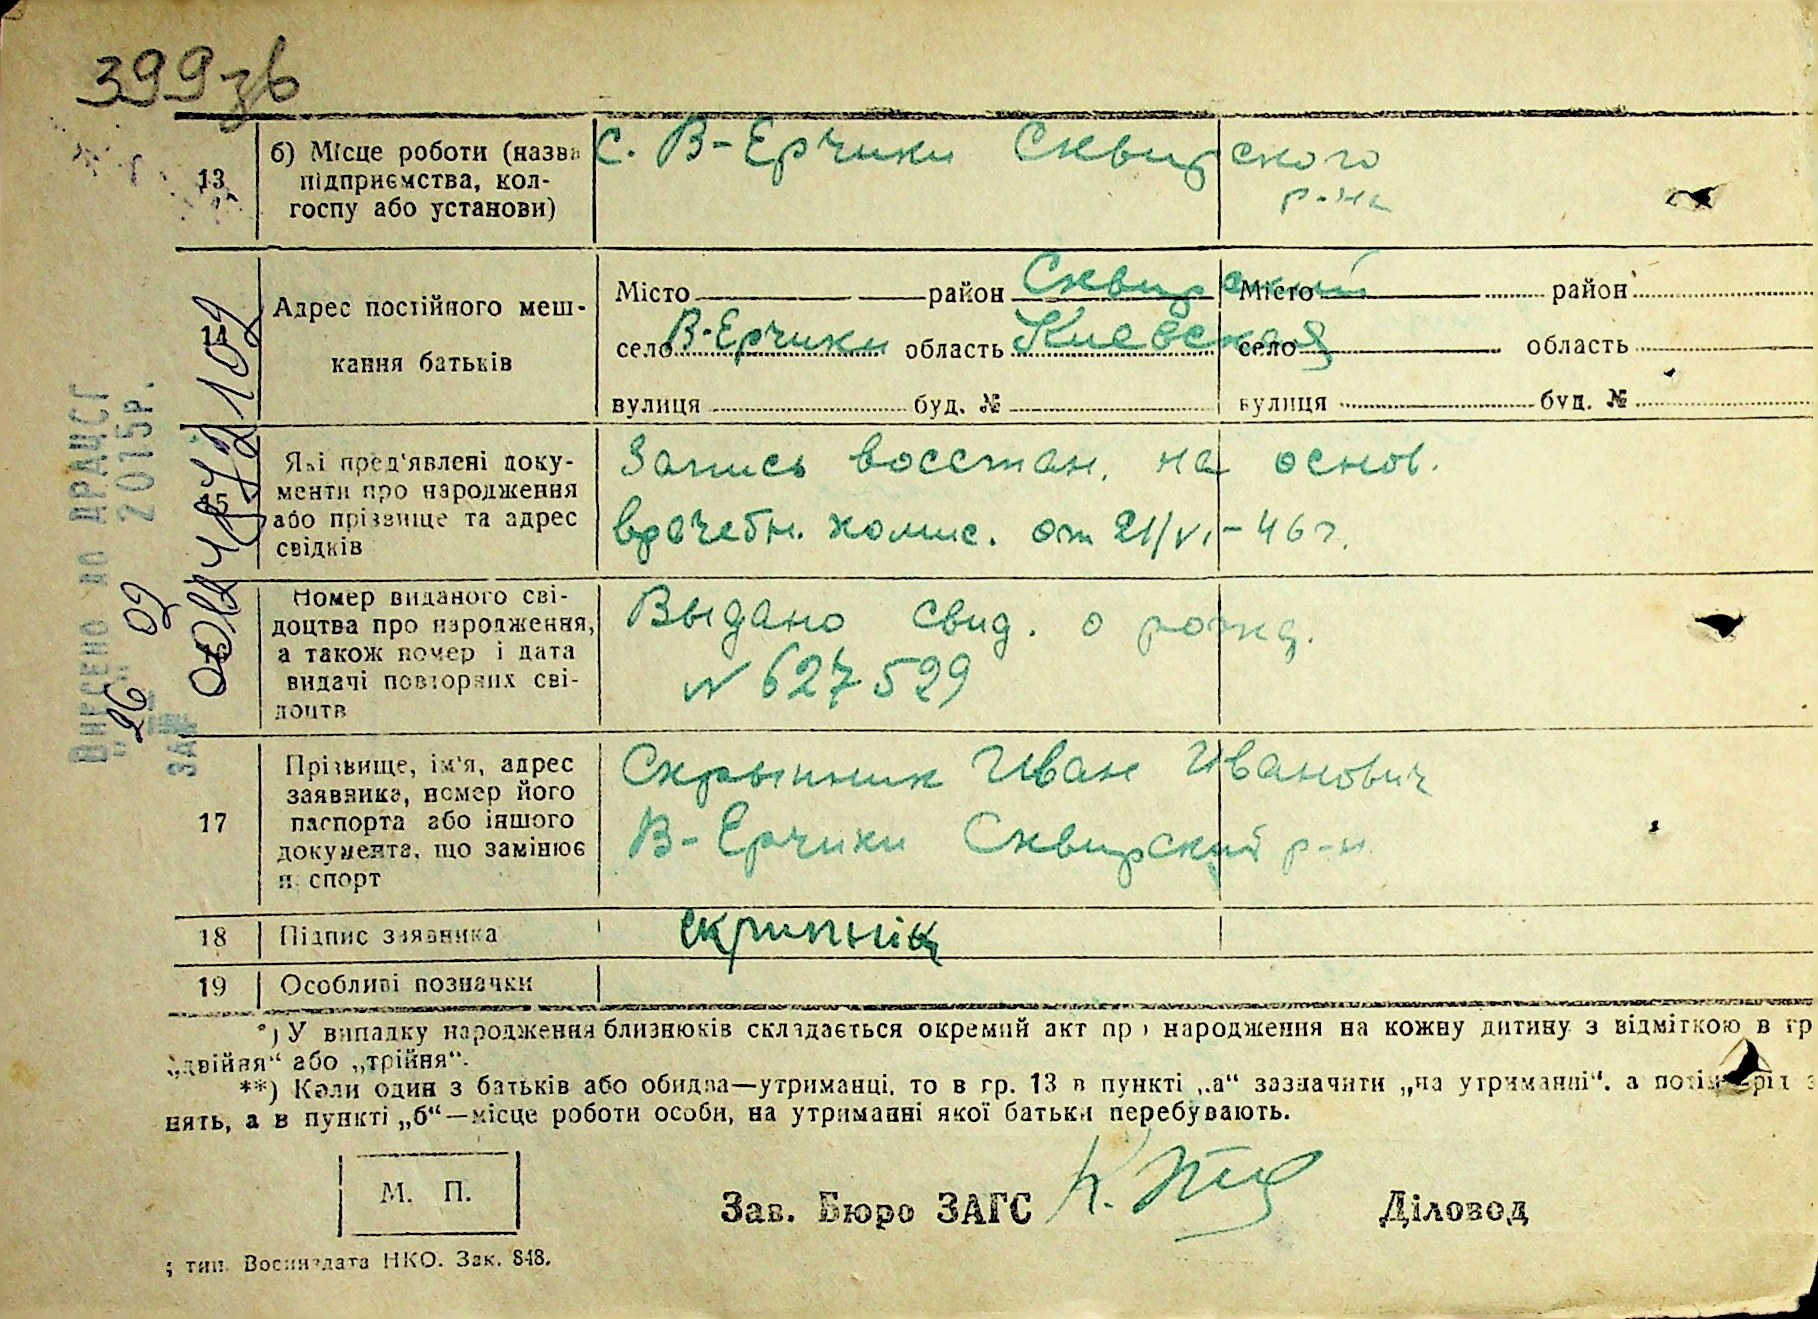 399зв
13
б) Місце роботи (назва
підприємства, кол-
госпу або установи)
с. В-Ерчики Сквирского
р-на
14
Адрес постійного меш-
кання батьків
Місто район Сквирский
село В-Ерчики область Киевская
вулиця буд. №
Місто район
село область
вулиця буд. №
15
Які пред'явлені доку-
менти про народження
або прізвище та адрес
свідків
Запись восстан. на основ.
врачебн. комис. от 21/VI-46г.
Номер виданого сві-
доцтва про народження,
а також номер і дата
видачі повторних сві-
доцтв
Выдано свид. о рожд.
№ 627529
17
Прізвище, ім'я, адрес
заявника, номер його
паспорта або іншого
документа, що замінює
п спорт
Скрыпник Иван Иванович
В-Ерчики Сквирский р-н
18
Підпис заявника
скрипнік
19
Особливі позначки
*) У випадку народження близнюків складається окремий акт про народження на кожну дитину з відміткою в гр
„двійня“ або „трійня“.
**) Коли один з батьків або обидва—утриманці, то в гр. 13 в пункті „а“ зазначити „на утриманні“, а потім
нять, а в пункті „б“—місце роботи особи, на утриманні якої батьки перебувають.
М. П.
Зав. Бюро ЗАГС
Діловод
тип. Воениздата НКО. Зак. 848.
Внесено до ДРАЦСГ
26 09 2015р.
ЗА №